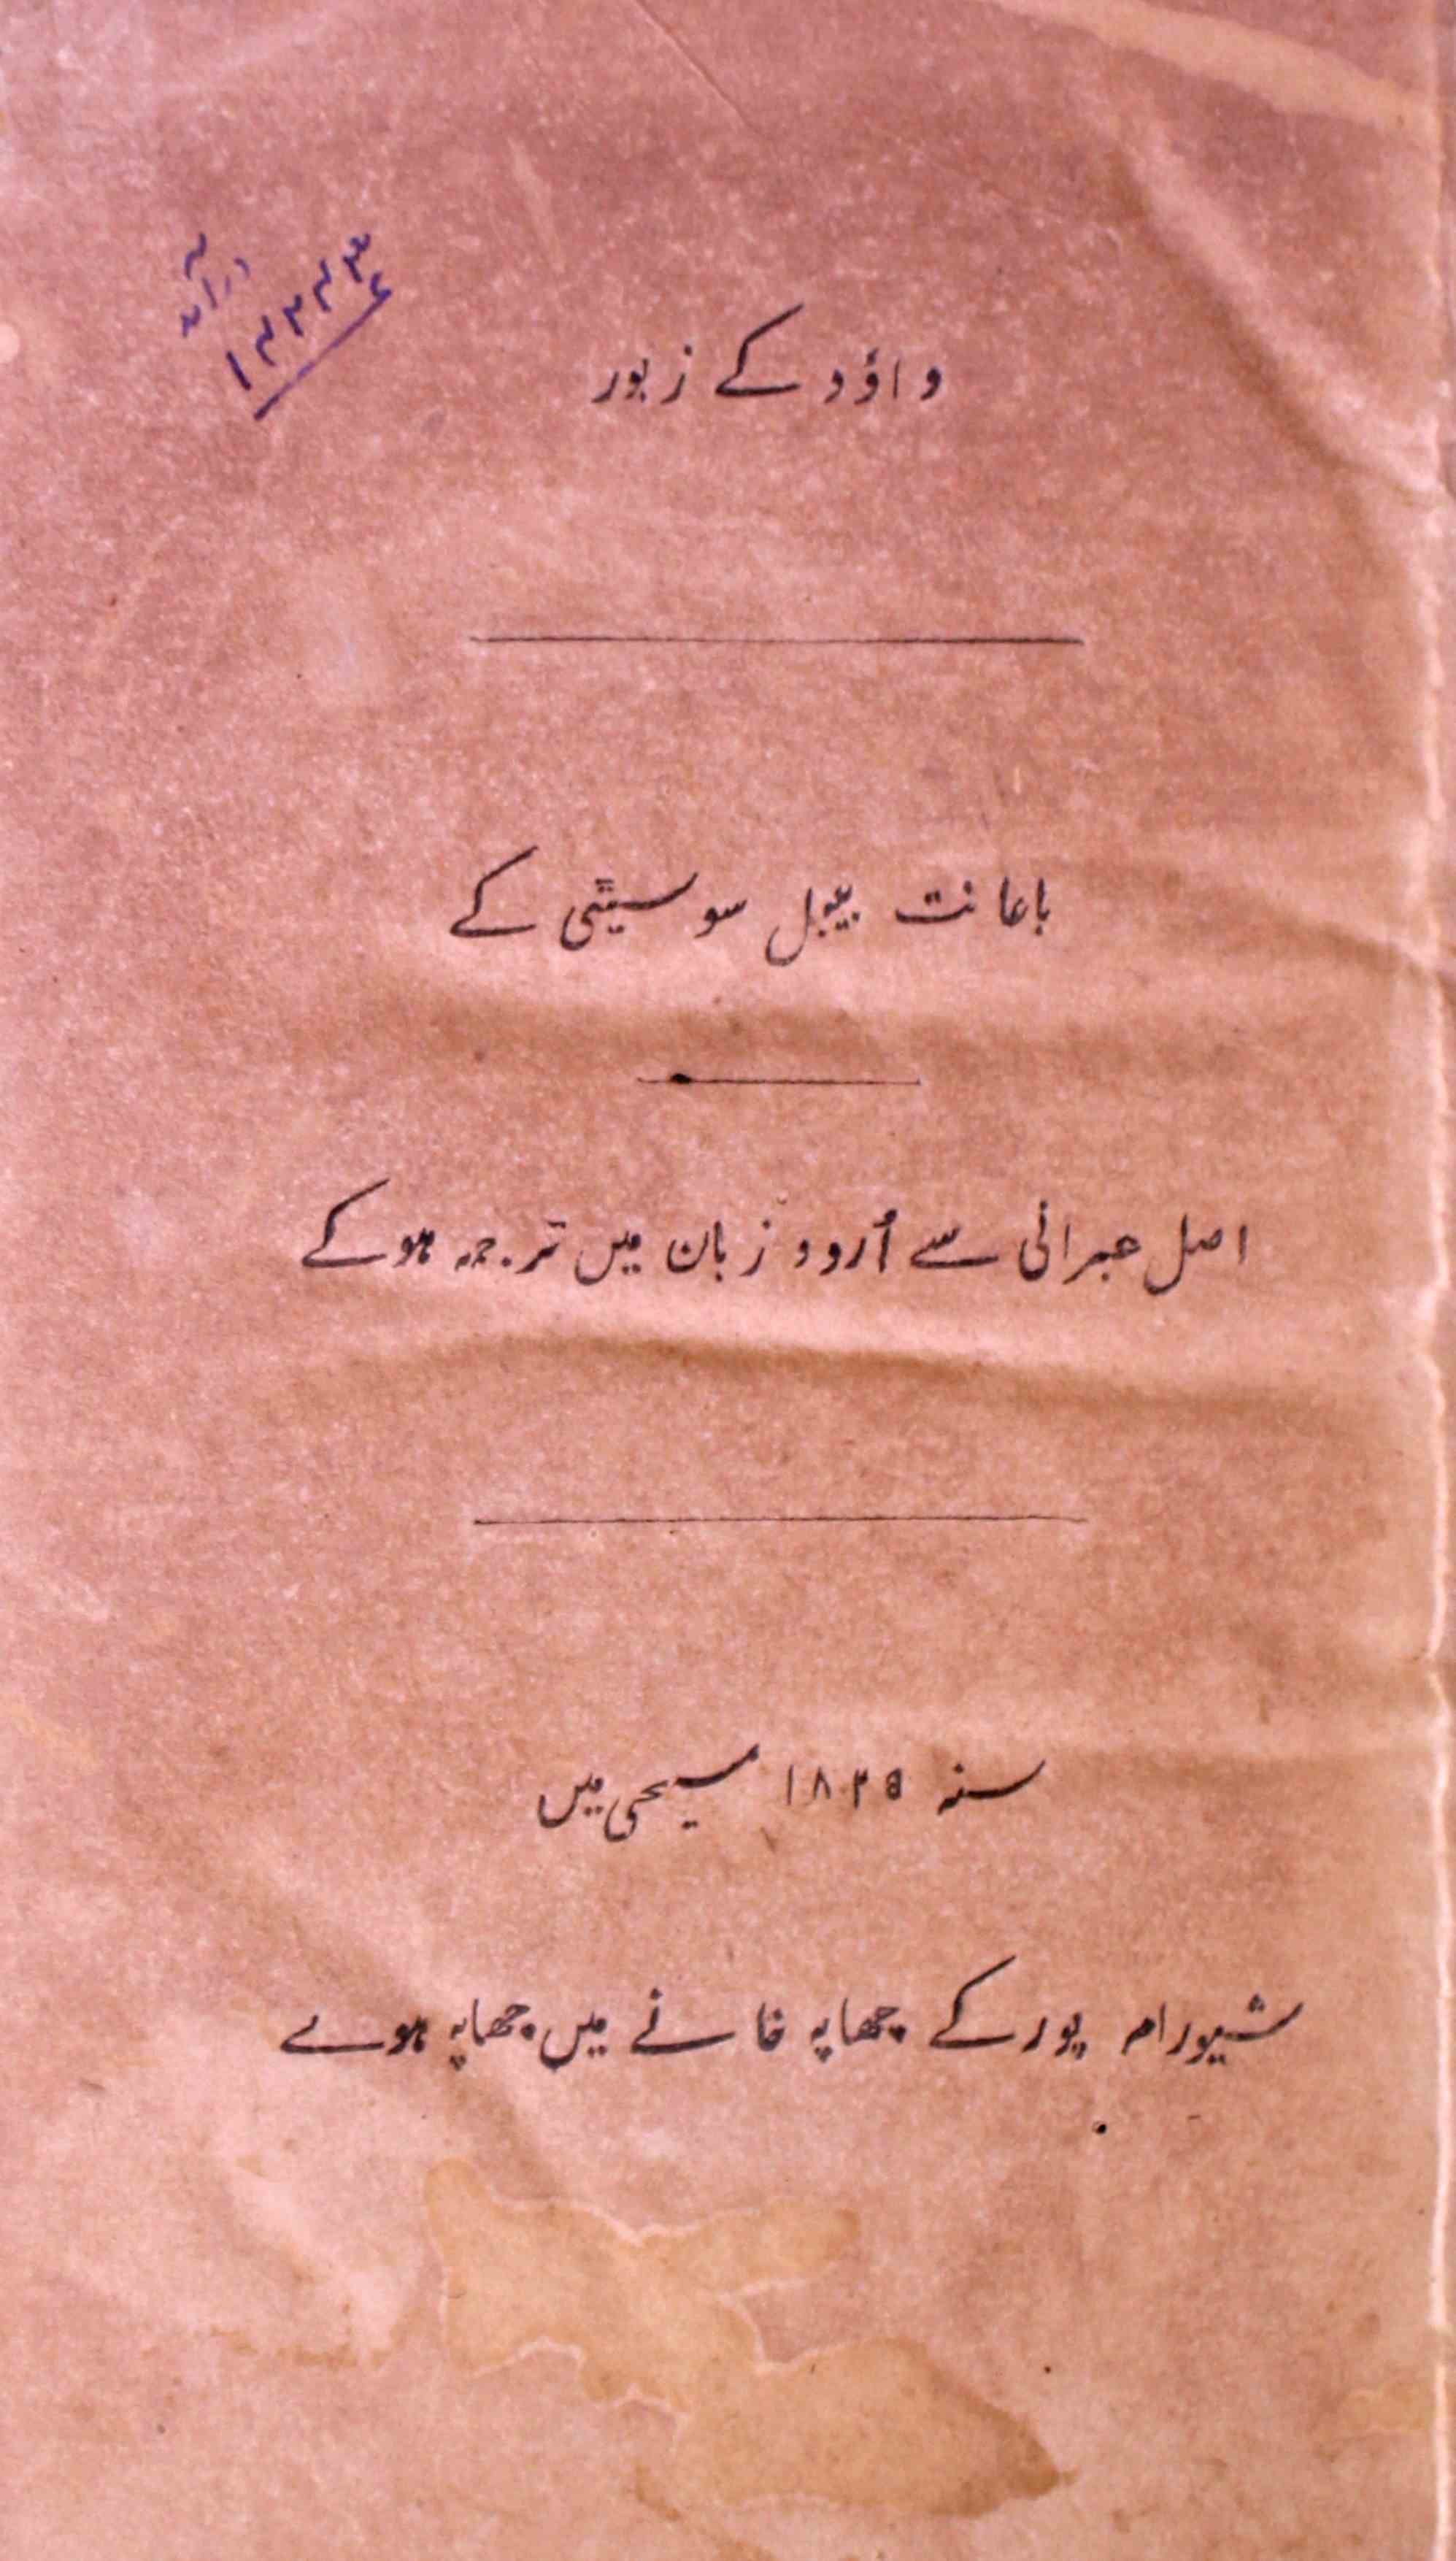 داؤد کے زبور
باعانت بیبل سوسیٹی کے
اصل عبرانی سے اُردو زبان میں ترجمہ ہوکے
سنہ ۱۸۲۵ مسیحی میں
شیورام پور کے چھاپہ خانے میں چھاپہ ہوے